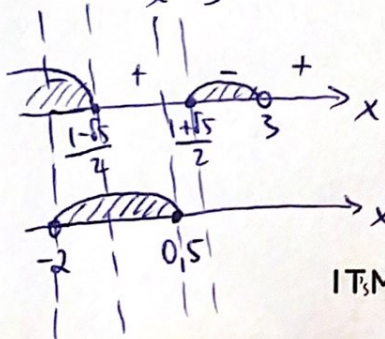 + - +
1-√5/4 1+√5/2 3 x
-2 0,5 x
IT'sM